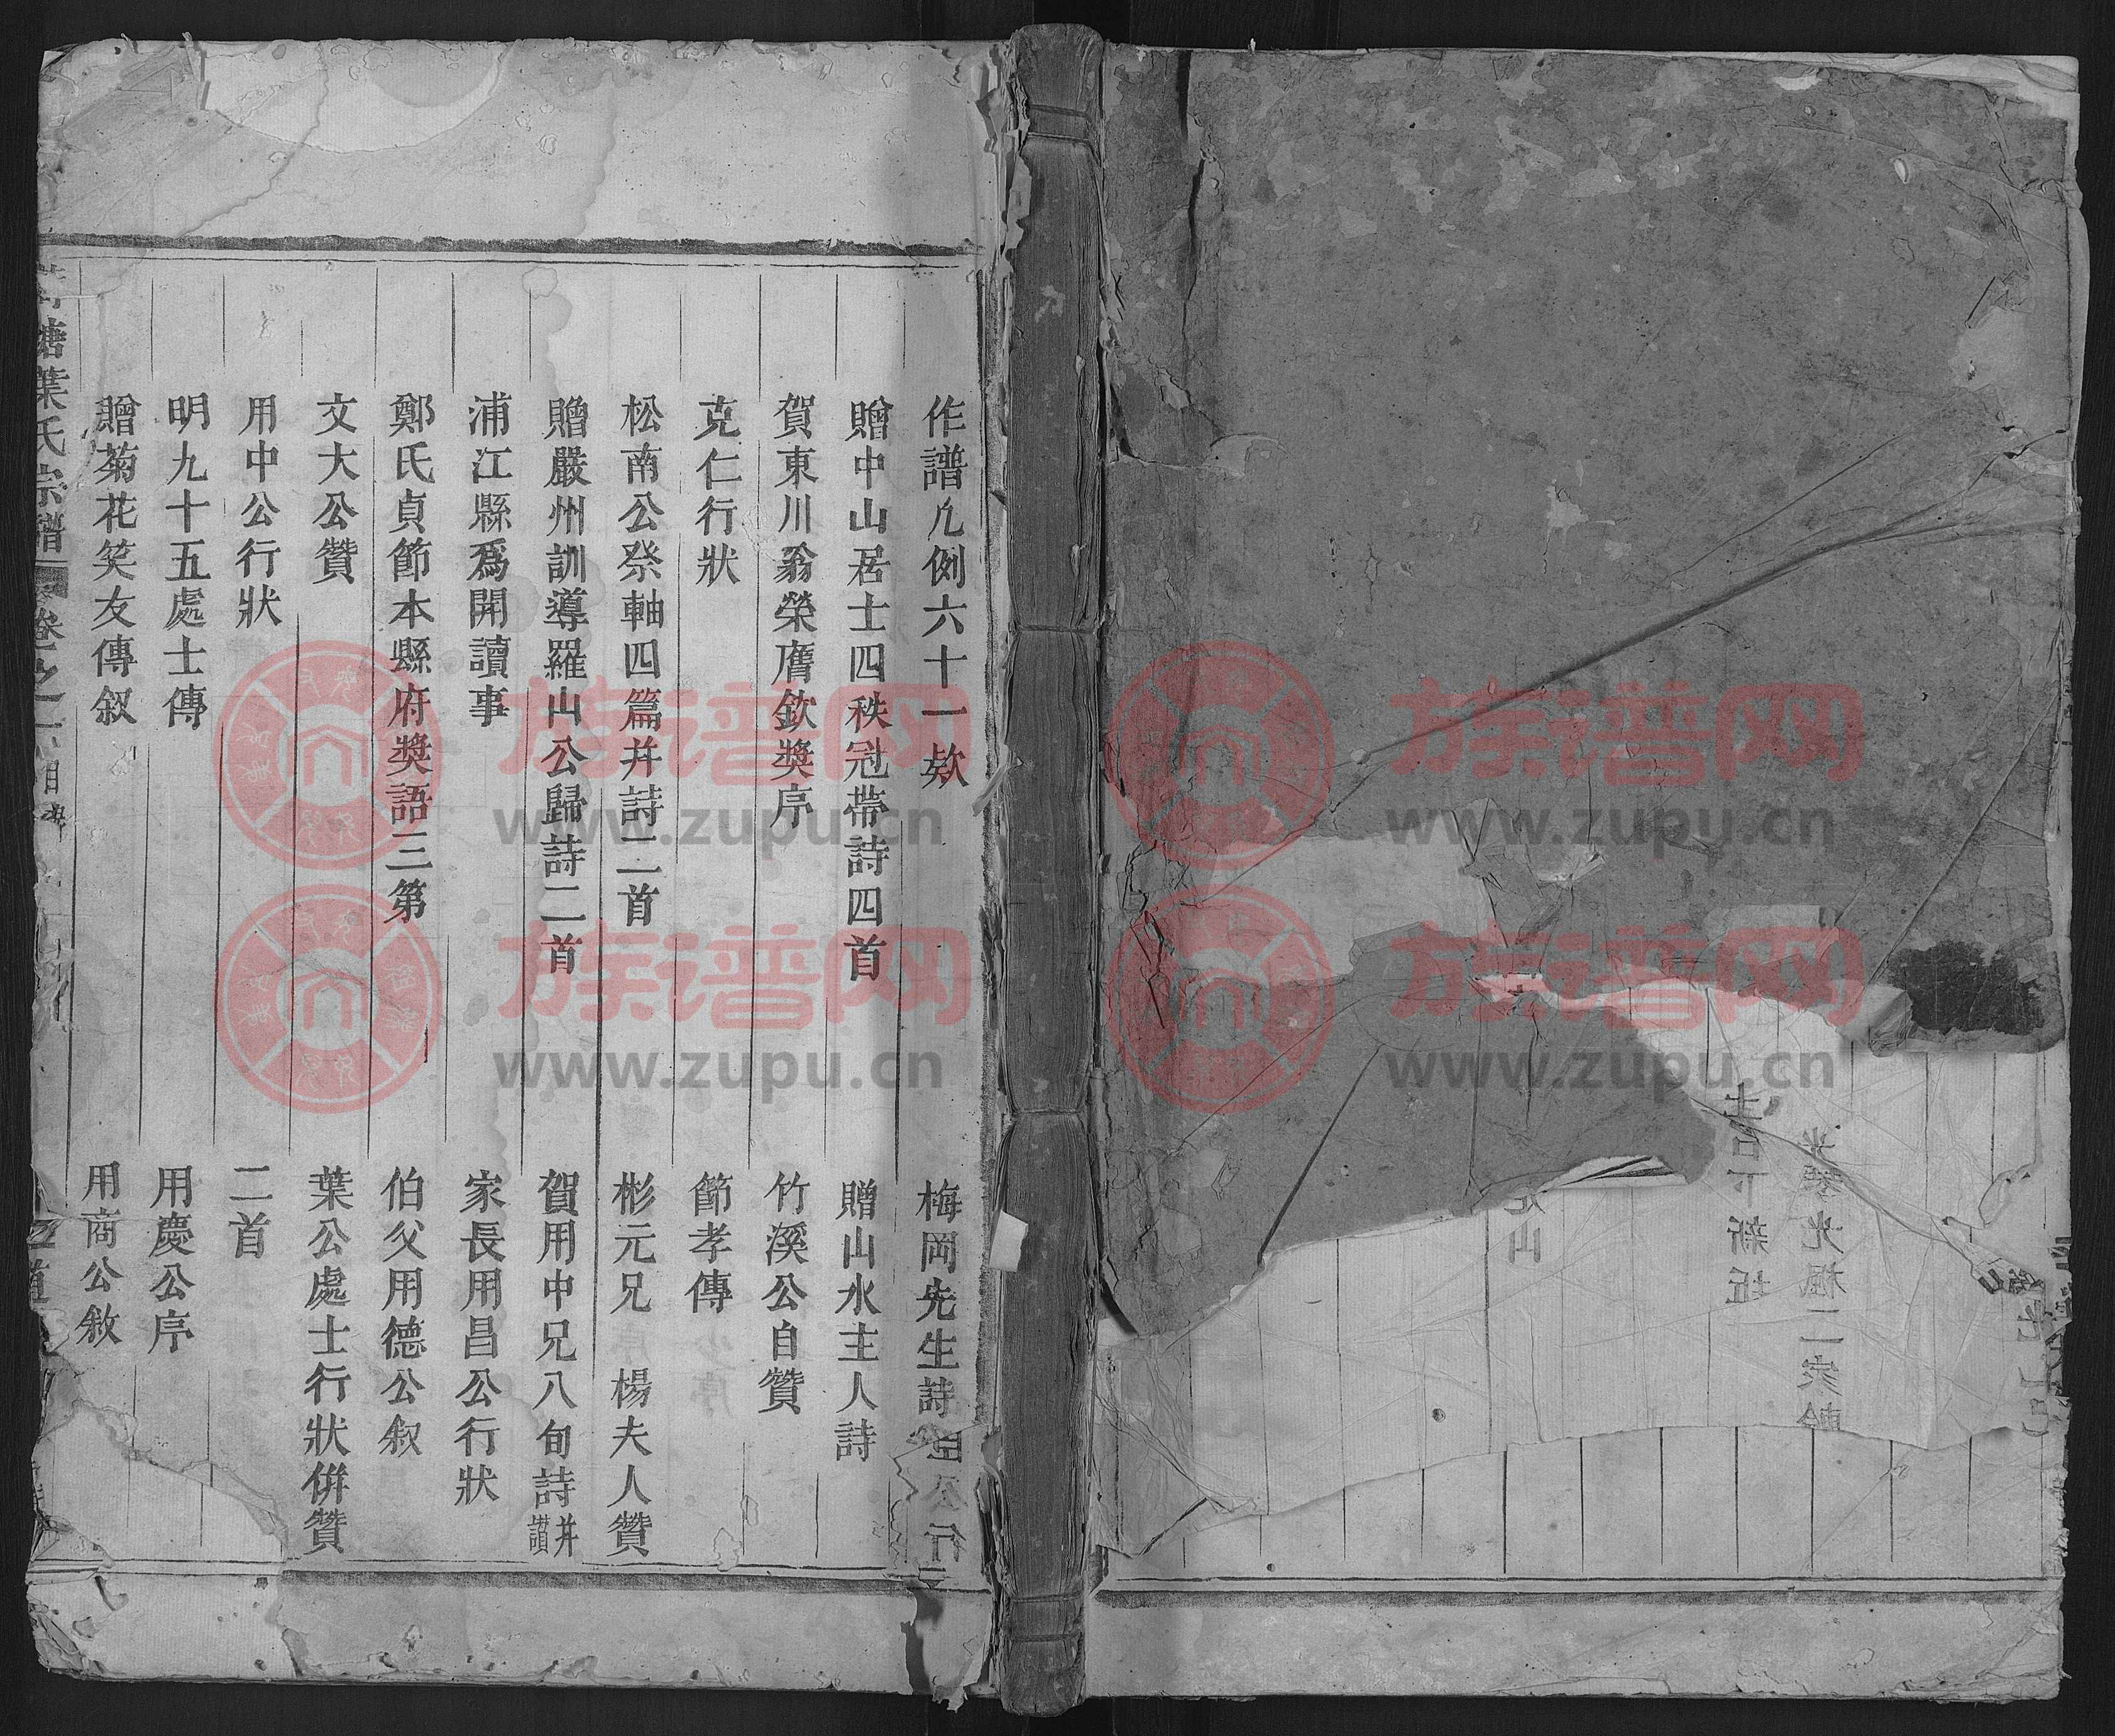 作譜凡例六十一欵
梅岡先生詩 公行
贈中山居士四秩冠帶詩四首
贈山水主人詩
賀東川翁榮膺欽獎序
竹溪公自贊
克仁行狀
節孝傳
松南公祭軸四篇并詩二首
彬元兄 楊夫人贊
贈嚴州訓導羅山公歸詩二首
賀用中兄八旬詩并讚
浦江縣爲開讀事
家長用昌公行狀
鄭氏貞節本縣府獎語三第
伯父用德公叙
文大公贊
葉公處士行狀併贊
用中公行狀
二首
明九十五處士傳
用慶公序
贈菊花笑友傳叙
用商公敘
塘葉氏宗譜 卷之一
士名下新坵
光棃光楓二家
山
族谱网
www.zupu.cn
族谱网
www.zupu.cn
族谱网
www.zupu.cn
族谱网
www.zupu.cn